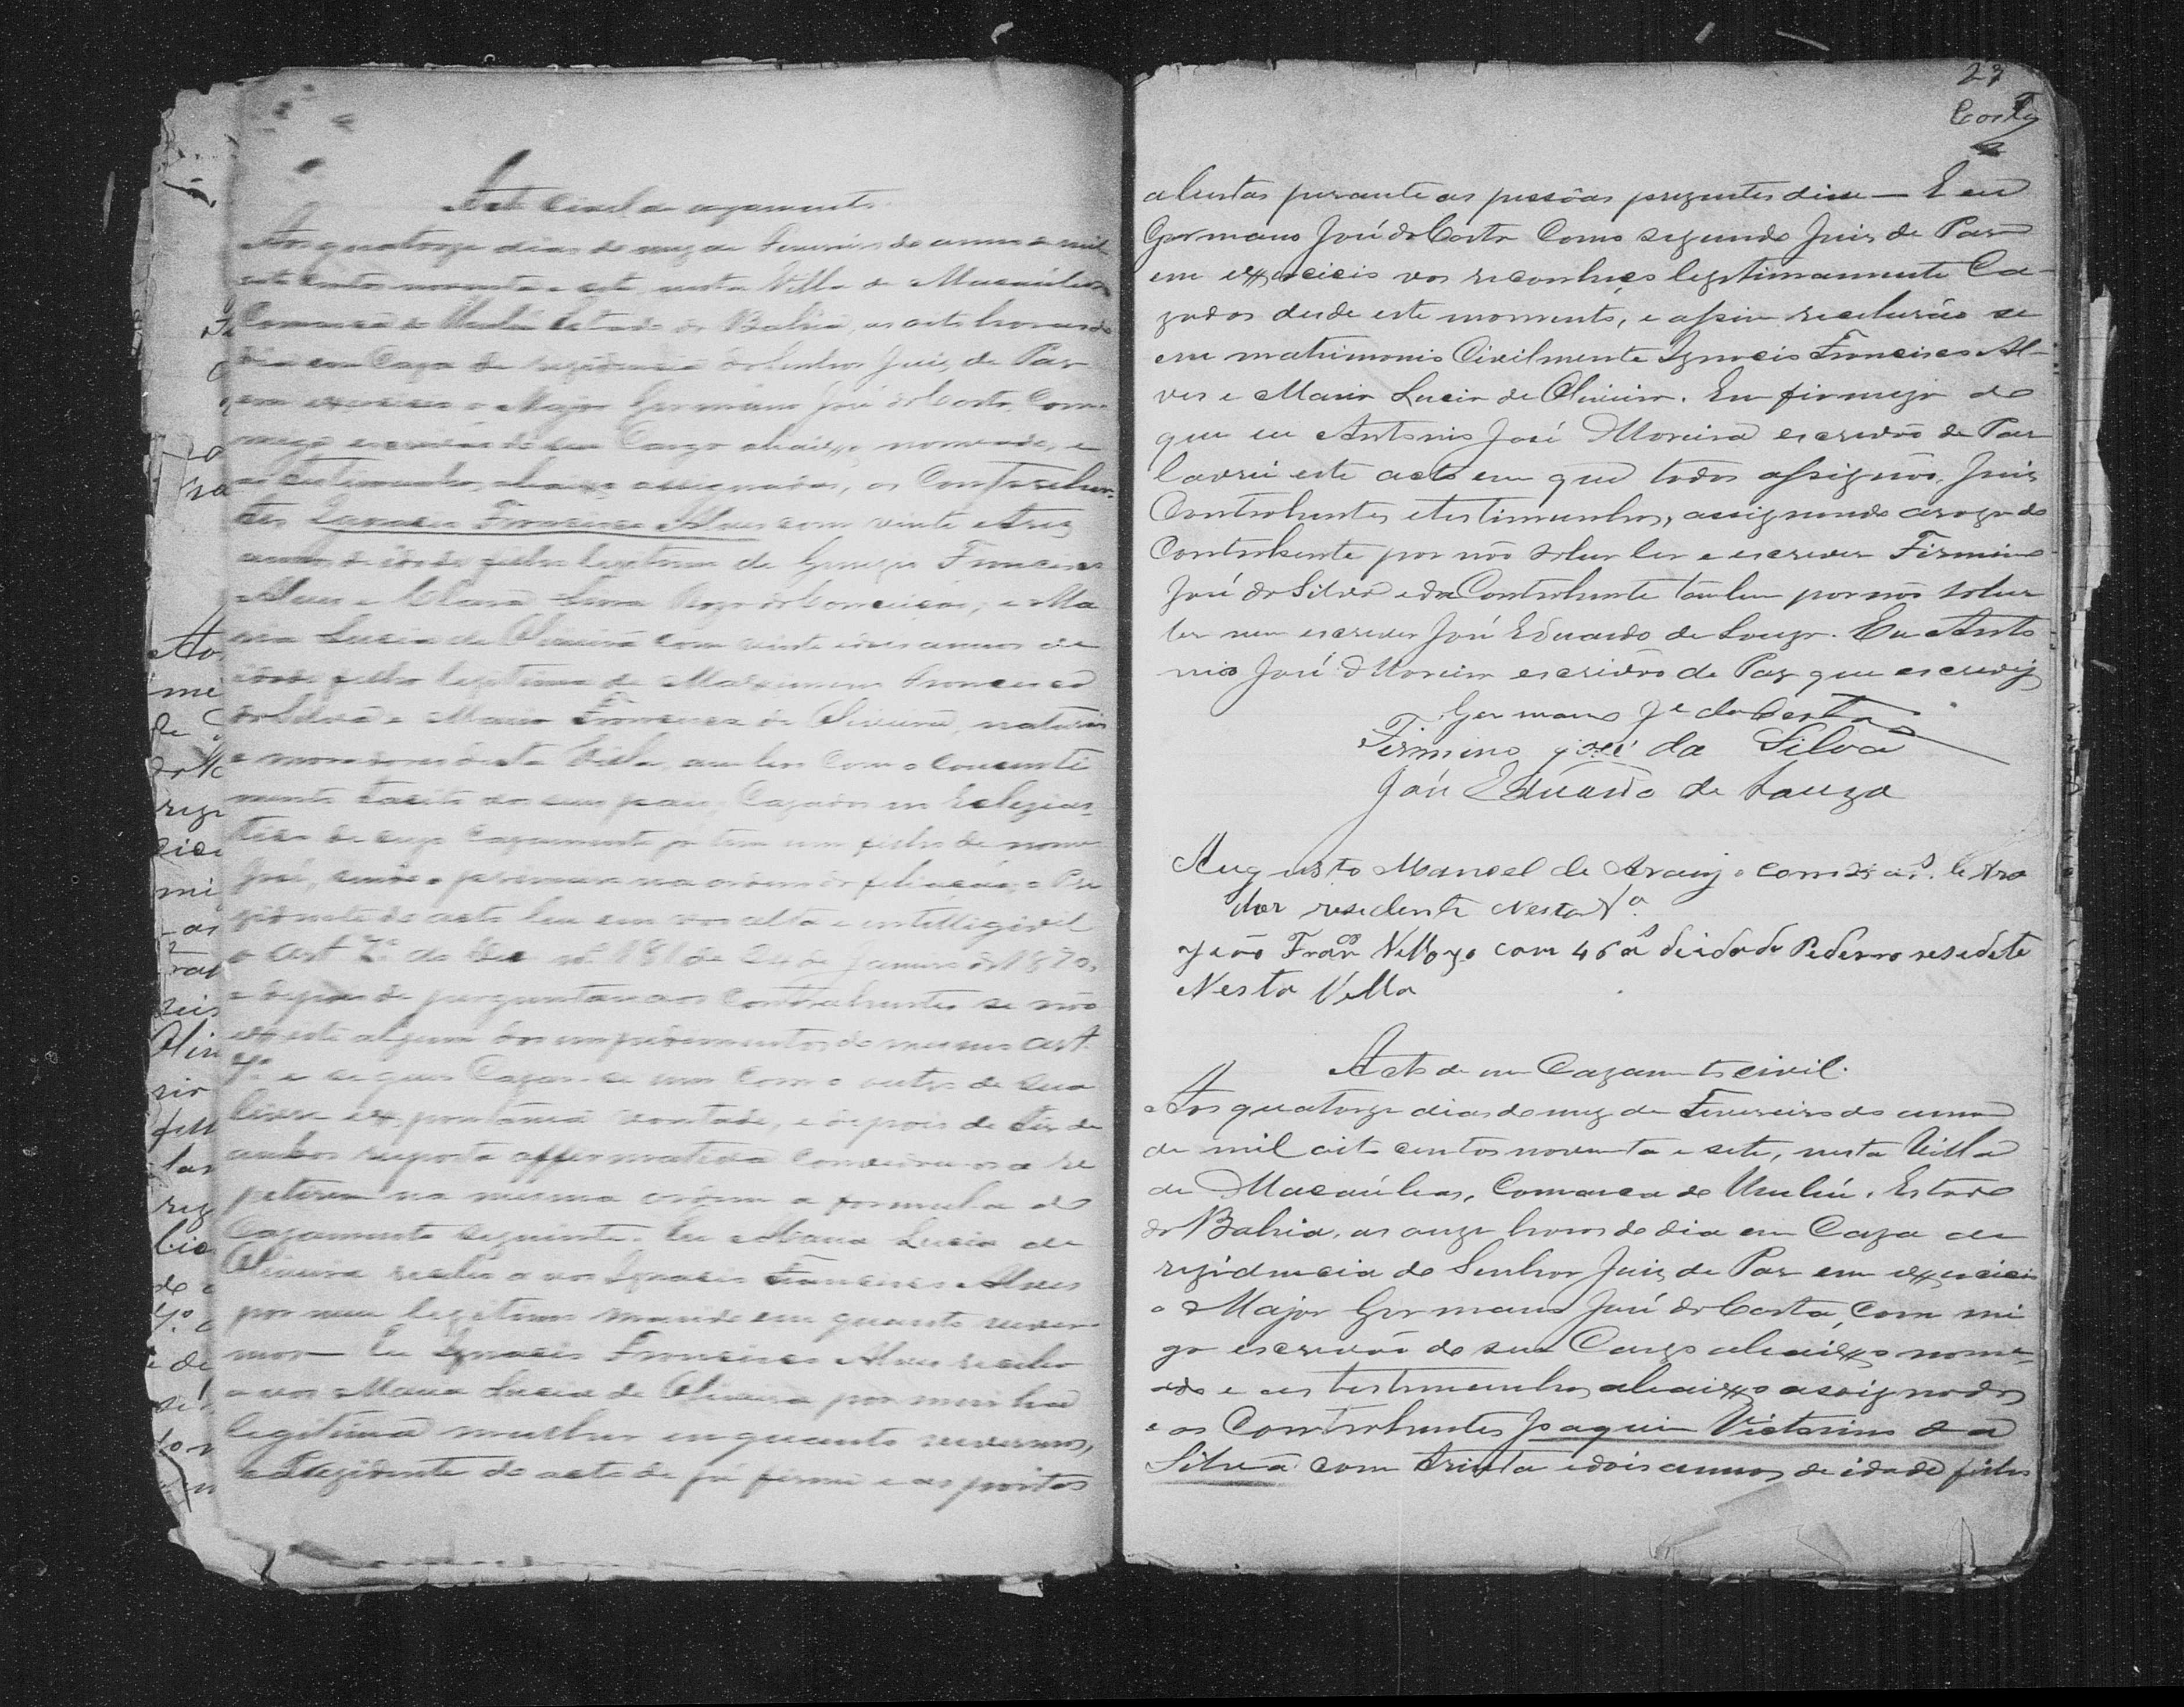 Acto Civel de cazamento
Aos quatorze dias do mez de Fevereiro do anno de mil
oito centos noventa e sete, nesta Villa de Macaúbas
Comarca de Urubú Estado da Bahia, as oito horas do
dia em Caza de rezidencia do Senhor Juiz de Paz
em exercicio o Major Germano José da Costa, Com-
migo escrivão do seu Cargo abaixo nomeado, e
as testimunhas abaixo assignadas, os Contrahen-
tes Ignacio Francisco Alves com vinte e trez
annos de idade filho legitimo de Francisco
Alves e Clara da Conceicão; e Ma
ria Lucia de Oliveira com vinte e dois annos de
idade filha legitima de Francisco
da Silva e Maria Francisca de Oliveira, naturais
e moradores desta Villa, ambos com o consenti
mento tacito de seus paes, Cazados no Eclezias-
tico de cujo Cazamento ja tem um filho de nome
José, a primeira na ordem da filiacão, o Pre
zidente do acto leu em vos alta e intelligivil
o art 7º do Dec nº 181 de 24 de Janeiro de 1890,
e depois de perguntar aos Contrahentes se não
existe algum dos impedimentos do mesmo art.
7º e se quer Cazar-se um com o outro de sua
livre e expontânea vontade, e depois de ter de
ambos resposta affirmativa convidou-os a re
petirem na mesma ordem a formula do
Cazamento seguinte. Eu Maria Lucia de
Oliveira recebo a vos Ignacio Francisco Alves
por meu legitimo marido em quanto viver-
mos — Eu Ignacio Francisco Alves recebo
a vos Maria Lucia de Oliveira por minha
legitima mulher enquanto vivermos,
o Prezidente do acto de pé firme e as portas
27
Costa
abertas perante as pessôas prezentes disse — E eu
Germano José da Costa Como segundo Juiz de Paz
em exxercicio vos reconheço legitimamente Ca-
zados desde este momento, e assim receberão se
em matrimonio Civilmente Ignacio Francisco Al-
ves e Maria Lucia de Oliveira. Em firmeza do
que eu Antonio José Moreira escrivão de Paz
lavrei este acto em que todos assignão, Juiz,
Contrahentes e testimunhas, assignando a rogo do
Contrahente por não saber ler e escrever Firmino
José da Silva e da Contrahente tambem por não saber
ler nem escrever José Eduardo de Souza. Eu Anto
nio José Moreira escrivão de Paz que escrevij
Germano Je da Costa
Firmino josé da Silva
José Eduardo de Souza
Augusto Manoel de Araujo com as. Lavra
dor residente Nesta Va
João Franco Vellozo com 46 as de idade Pedero resedete
Nesta Villa
Acto de um Cazamento civil.
Aos quatorze dias do mez de Fevereiro do anno
de mil oito centos noventa e sete, nesta Villa
de Macaúbas, Comarca de Urubú, Estado
da Bahia, as onze horas do dia em Caza de
rezidencia do Senhor Juiz de Paz em exxercicio
o Major Germano José da Costa, com mi
go escrivão do seu Cargo abaixxo nome-
ado e as testimunhas abaixxo assignados
e os Contrahentes Joaquim Victorino da
Silva com trinta e dois annos de idade filho